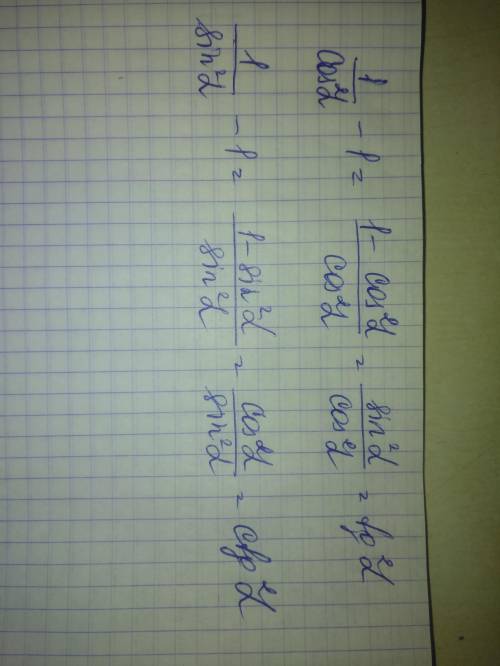 1/cos²α - 1 = (1 - cos²α)/cos²α = sin²α/cos²α = tg²α
1/sin²α - 1 = (1 - sin²α)/sin²α = cos²α/sin²α = ctg²α